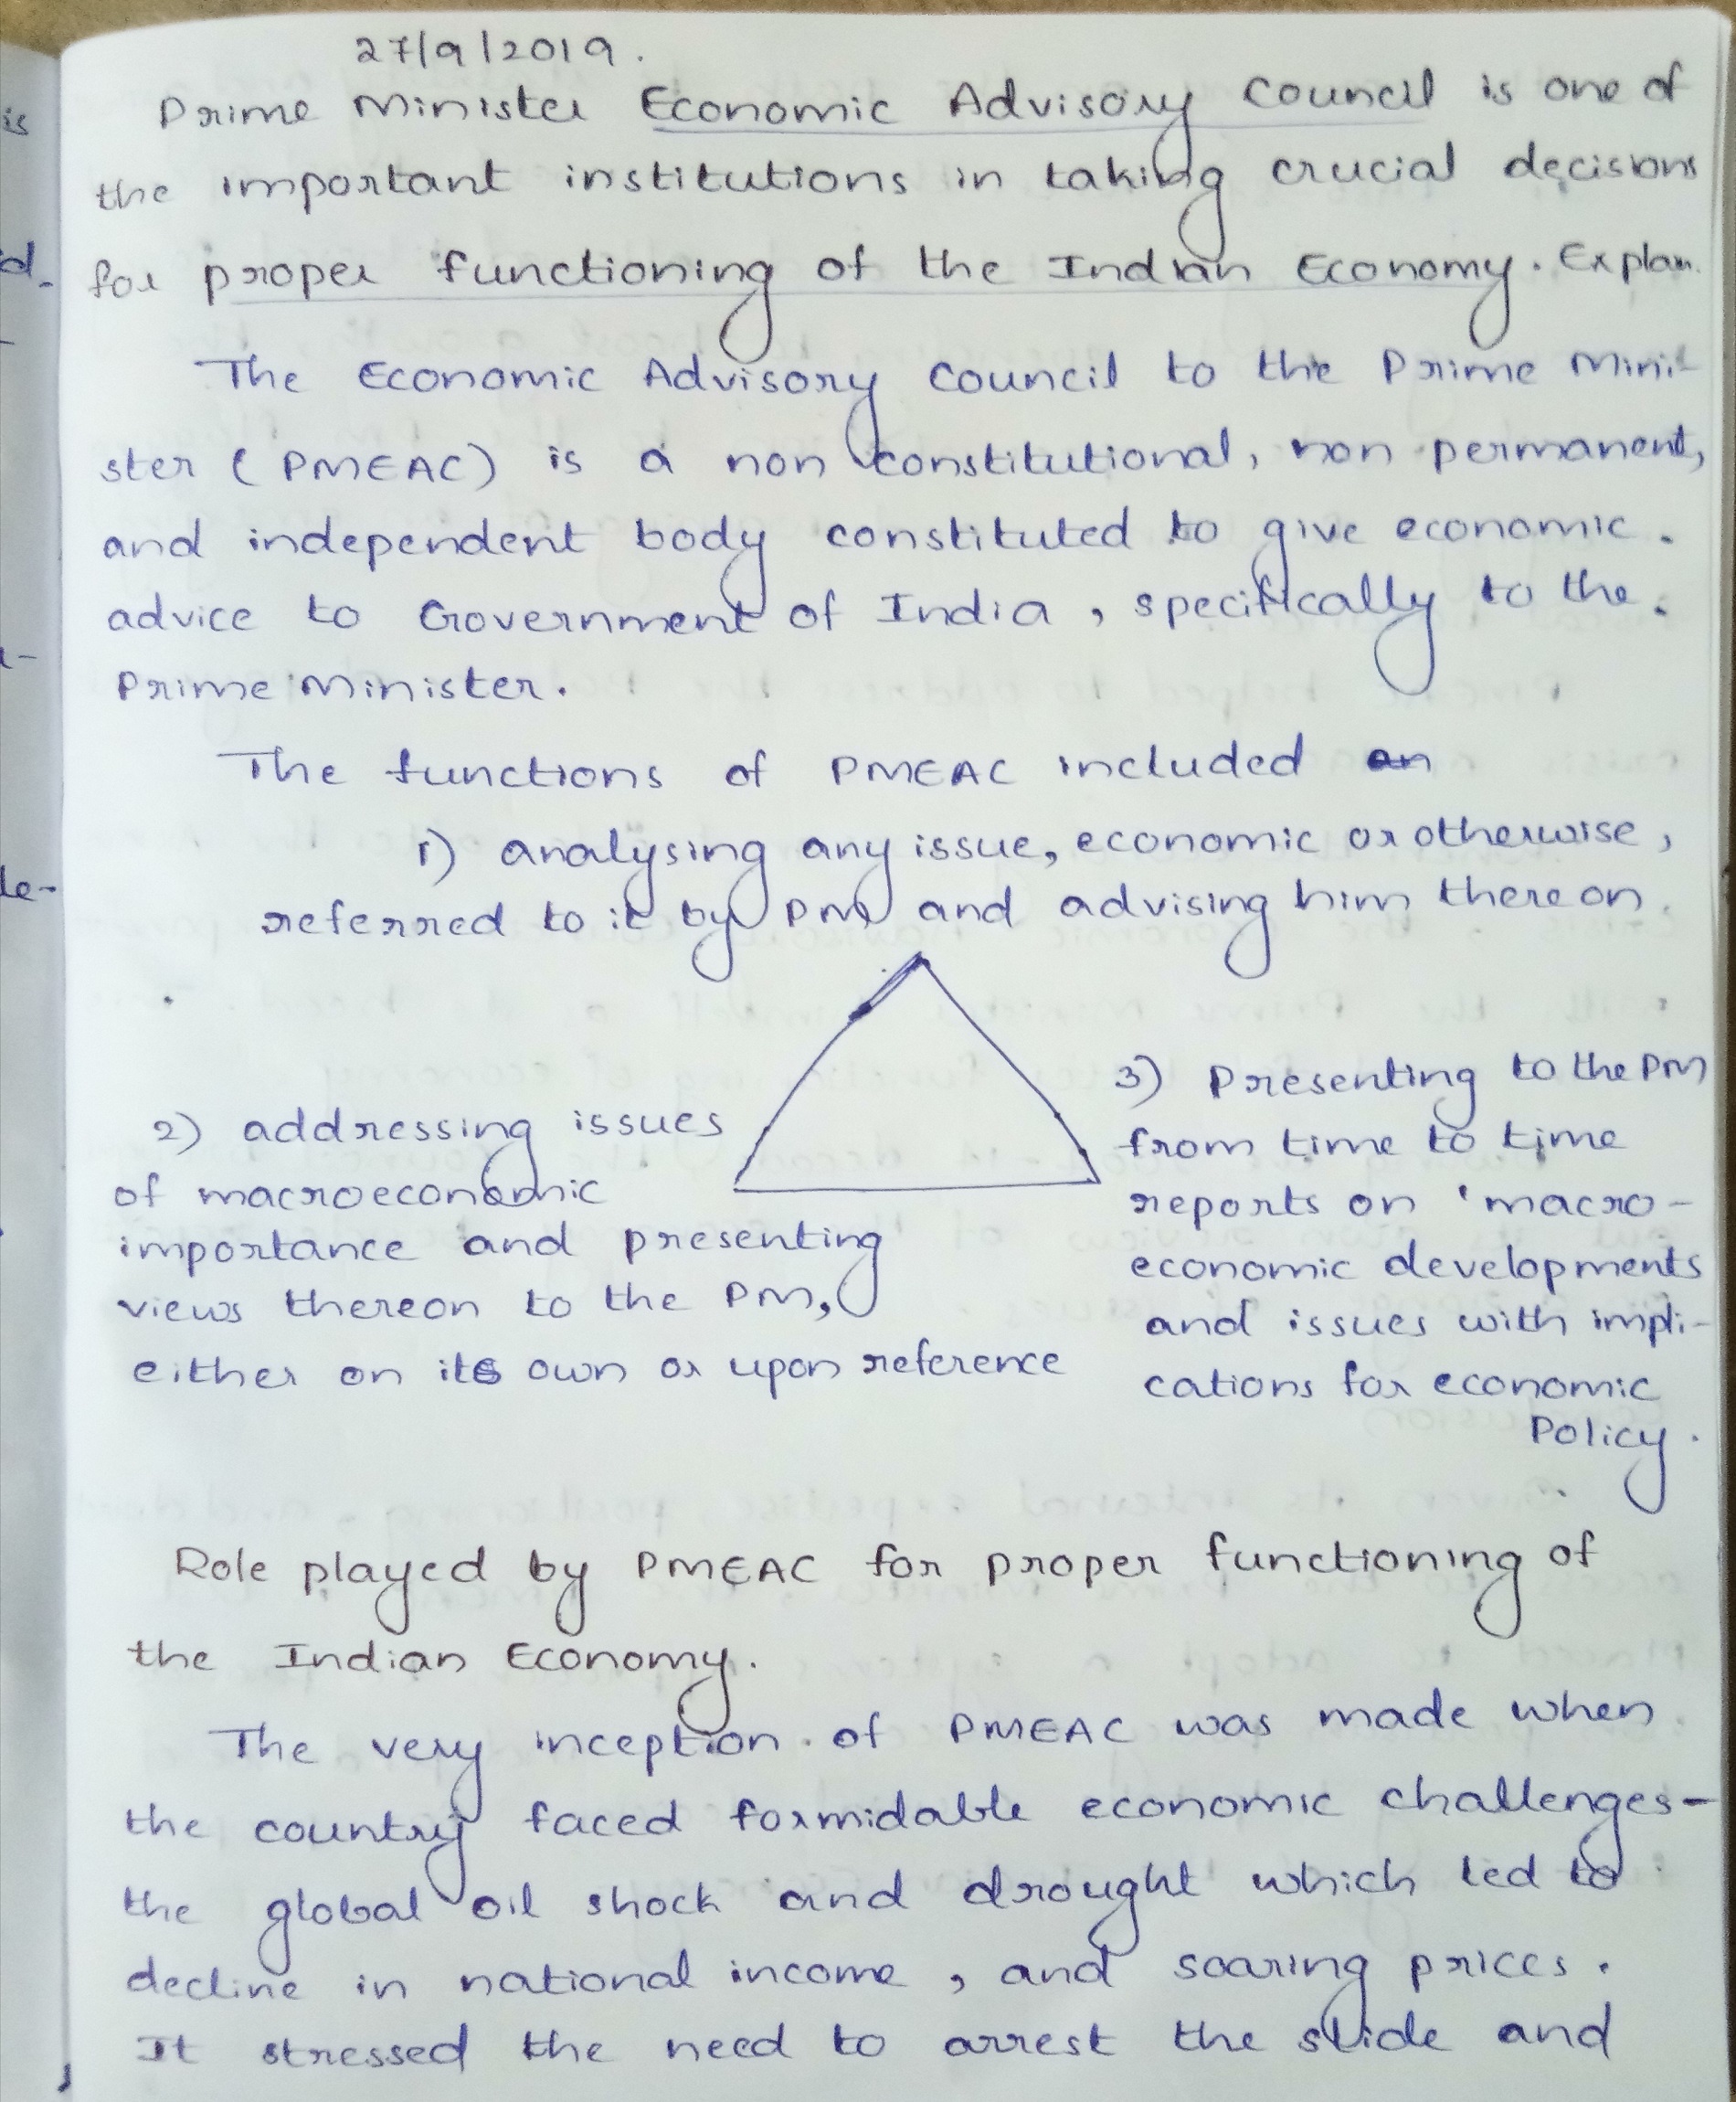 27/9/2019.
Prime Minister Economic Advisory Council is one of
the important institutions in taking crucial decisions
for proper functioning of the Indian Economy. Explain.
The Economic Advisory Council to the Prime Mini
ster (PMEAC) is a non constitutional, non permanent,
and independent body constituted to give economic.
advice to Government of India, specifically to the.
Prime Minister.
The functions of PMEAC included an
1) analysing any issue, economic or otherwise,
referred to it by PM and advising him thereon.
2) addressing issues
of macroeconomic
importance and presenting
views thereon to the PM,
either on its own or upon reference
3) Presenting to the PM
from time to time
reports on 'macro-
economic developments
and issues with impli-
cations for economic
Policy.
Role played by PMEAC for proper functioning of
the Indian Economy.
The very inception of PMEAC was made when
the country faced formidable economic challenges-
the global oil shock and drought which led to
decline in national income, and soaring prices.
It stressed the need to arrest the slide and
is
d.
le-